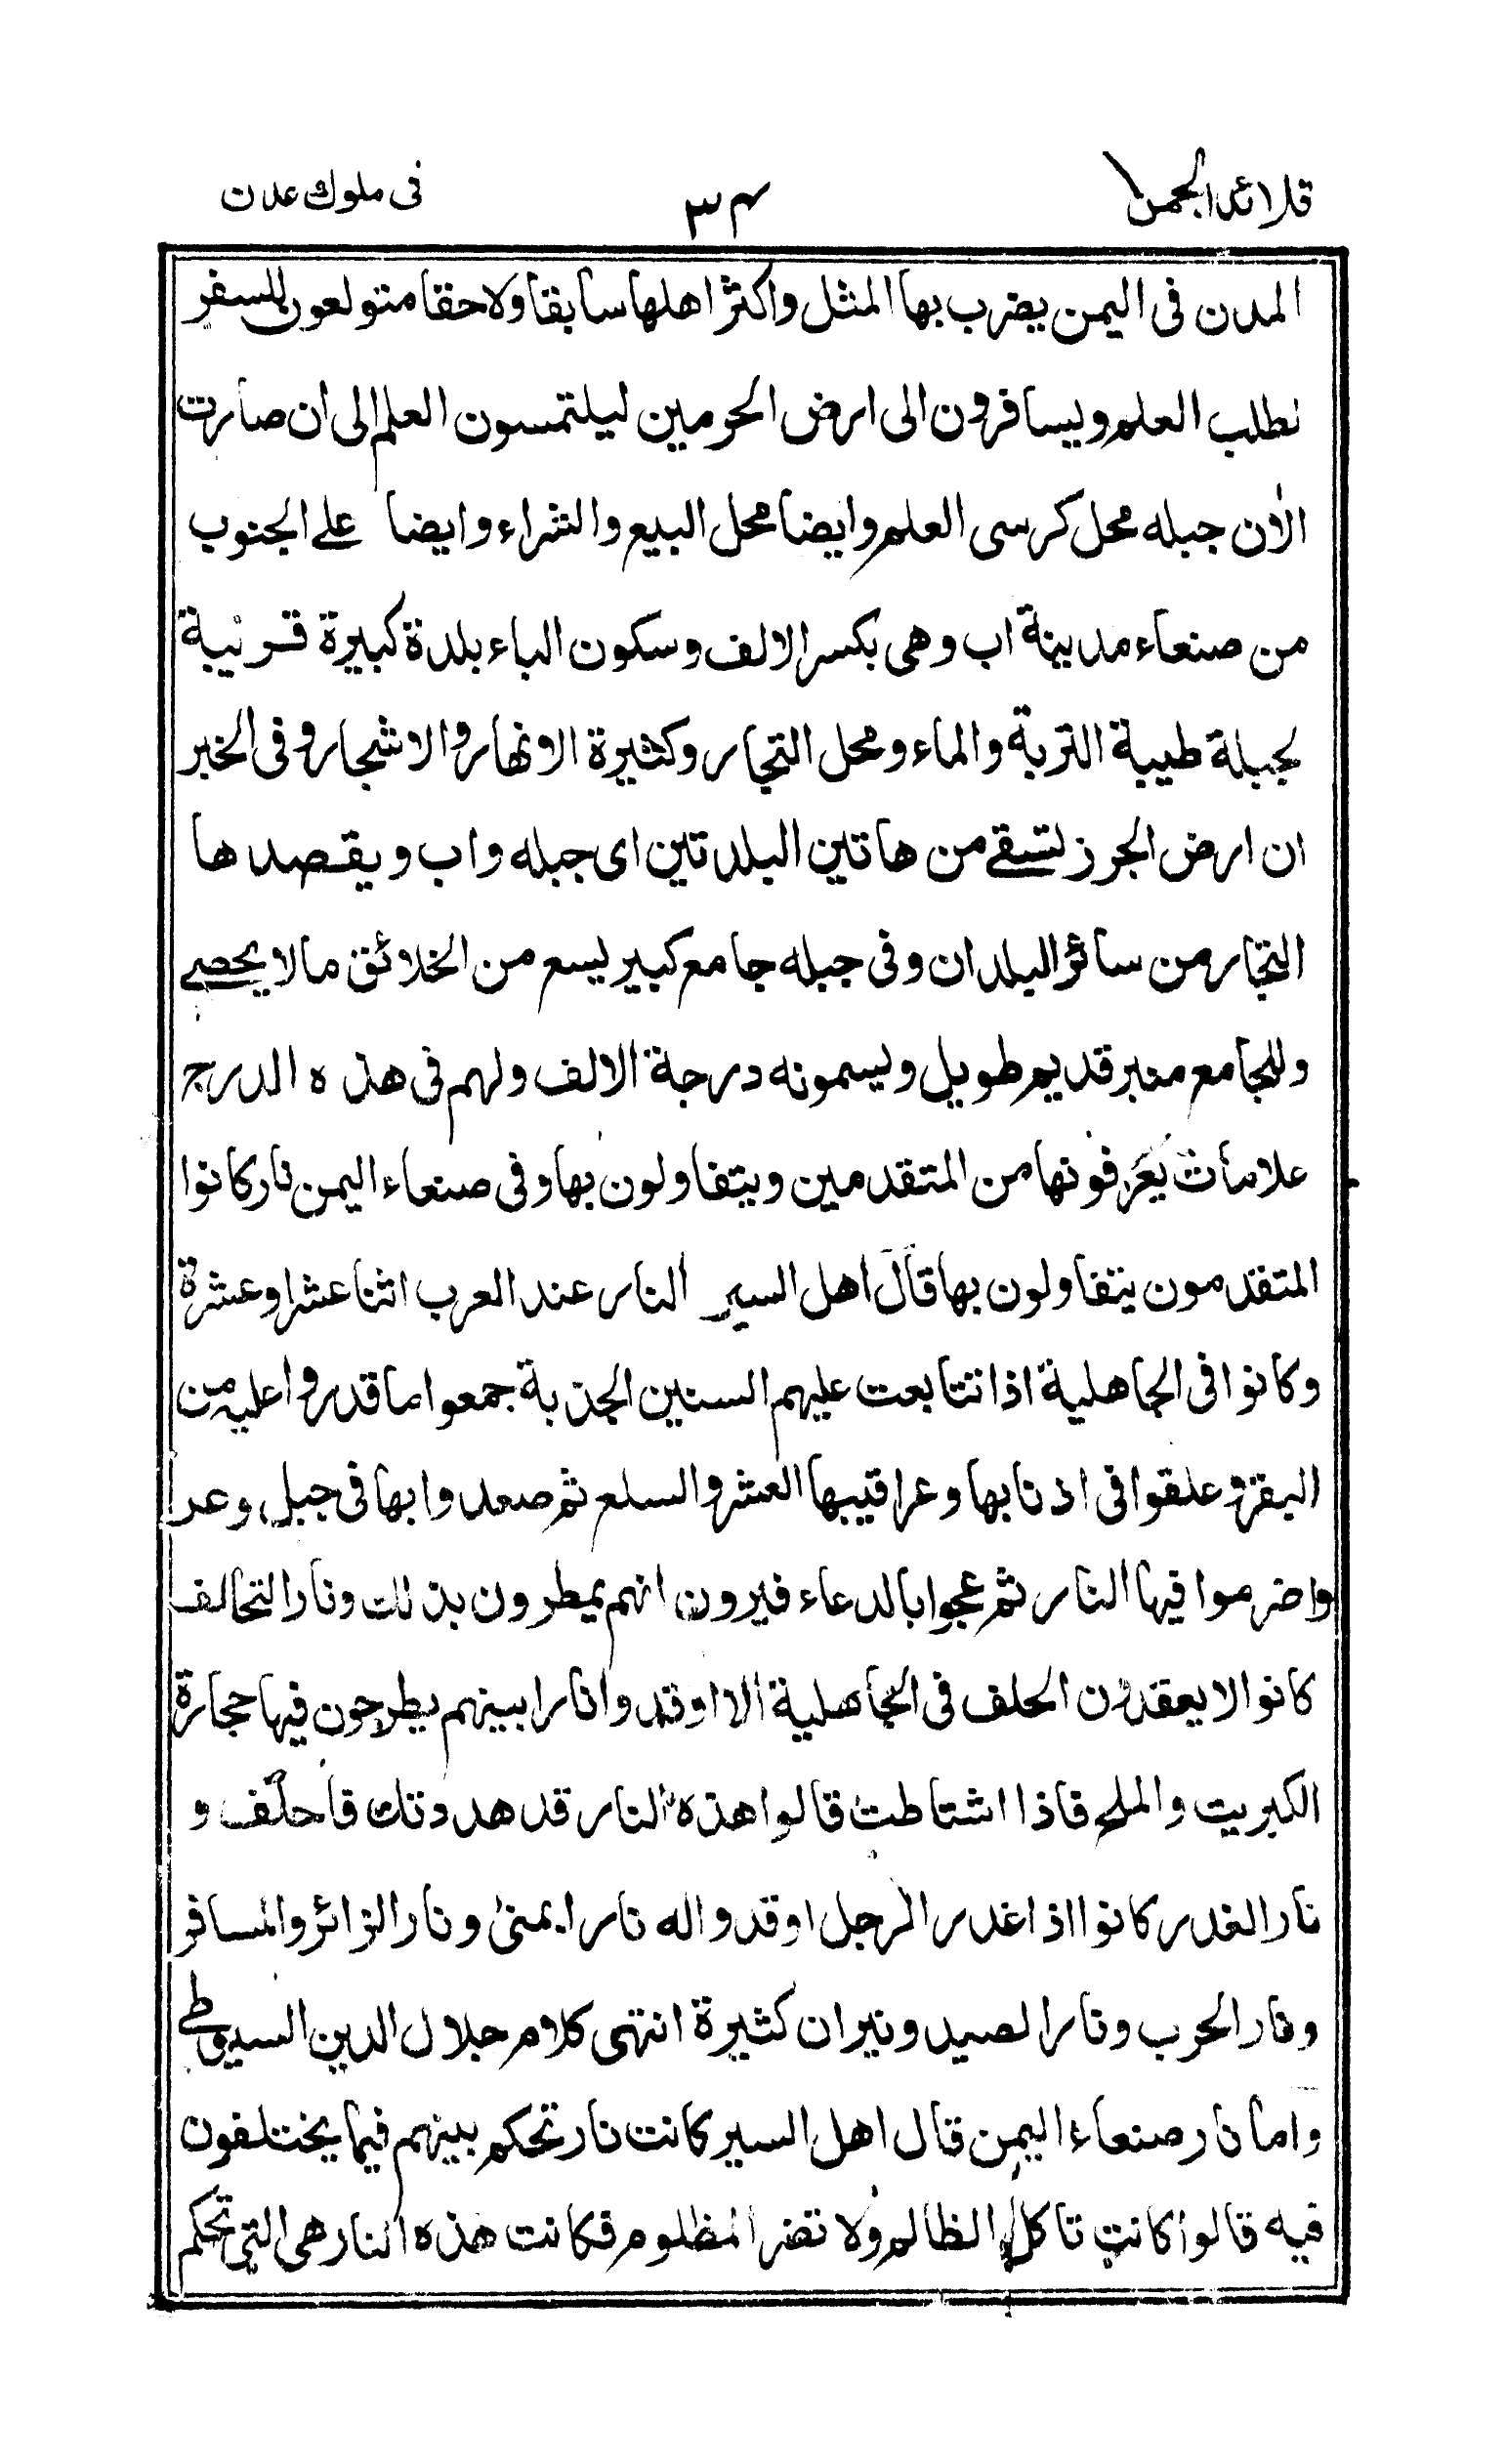 قلائد الجمن ٣٤ فى ملوك عدن
المدن فى اليمن يضرب بها المثل واكثر اهلها سابقا ولاحقا متولعون للسفر
لطلب العلم ويسافرون الى ارض الحرمين ليلتمسون العلم الى ان صارت
الان جبله محل كرسى العلم وايضا محل البيع والشراء وايضا على الجنوب
من صنعاء مدينة اب وهى بكسر الالف وسكون الباء بلدة كبيرة قريبة
لجبلة طيبة التربة والماء ومحل التجار وكثيرة الانهار والاشجار وفى الخبر
ان ارض الجرز لتسقى من هاتين البلدتين اى جبله واب ويقصدها
التجار من سائر البلدان وفى جبله جامع كبير يسع من الخلائق مالا يحصى
وللجامع منبر قديم طويل ويسمونه درجة الالف ولهم فى هذه الدرج
علامات يعرفونها من المتقدمين ويتفاولون بها وفى صنعاء اليمن نار كانوا
المتقدمون يتفاولون بها قال اهل السير النار عند العرب اثنا عشرا وعشرة
وكانوا فى الجاهلية اذا تتابعت عليهم السنين الجدبة جمعوا ما قدروا عليه من
البقر وعلقوا فى اذنابها وعراقيبها العشر والسلع ثم صعدوا بها فى جبل وعرا
واضرموا فيها النار ثم عجوا بالدعاء فيرون انهم يمطرون بذلك ونار التحالف
كانوا لا يعقدون الحلف فى الجاهلية الا اوقدوا نارا بينهم يطرحون فيها حجارة
الكبريت والملح فاذا اشتاطت قالوا هذه النار قد هددتك فاحلف و
نار الغدر كانوا اذا غدر الرجل اوقدوا له نارا بمنى ونار الزائر والمسافر
ونار الحرب ونار الصيد ونيران كثيرة انتهى كلام جلال الدين السيوطى
واما نار صنعاء اليمن قال اهل السير كانت نار تحكم بينهم فيما يختلفون
فيه قالوا كانت تاكل الظالم ولا تضر المظلوم فكانت هذه النار هى التى تحكم